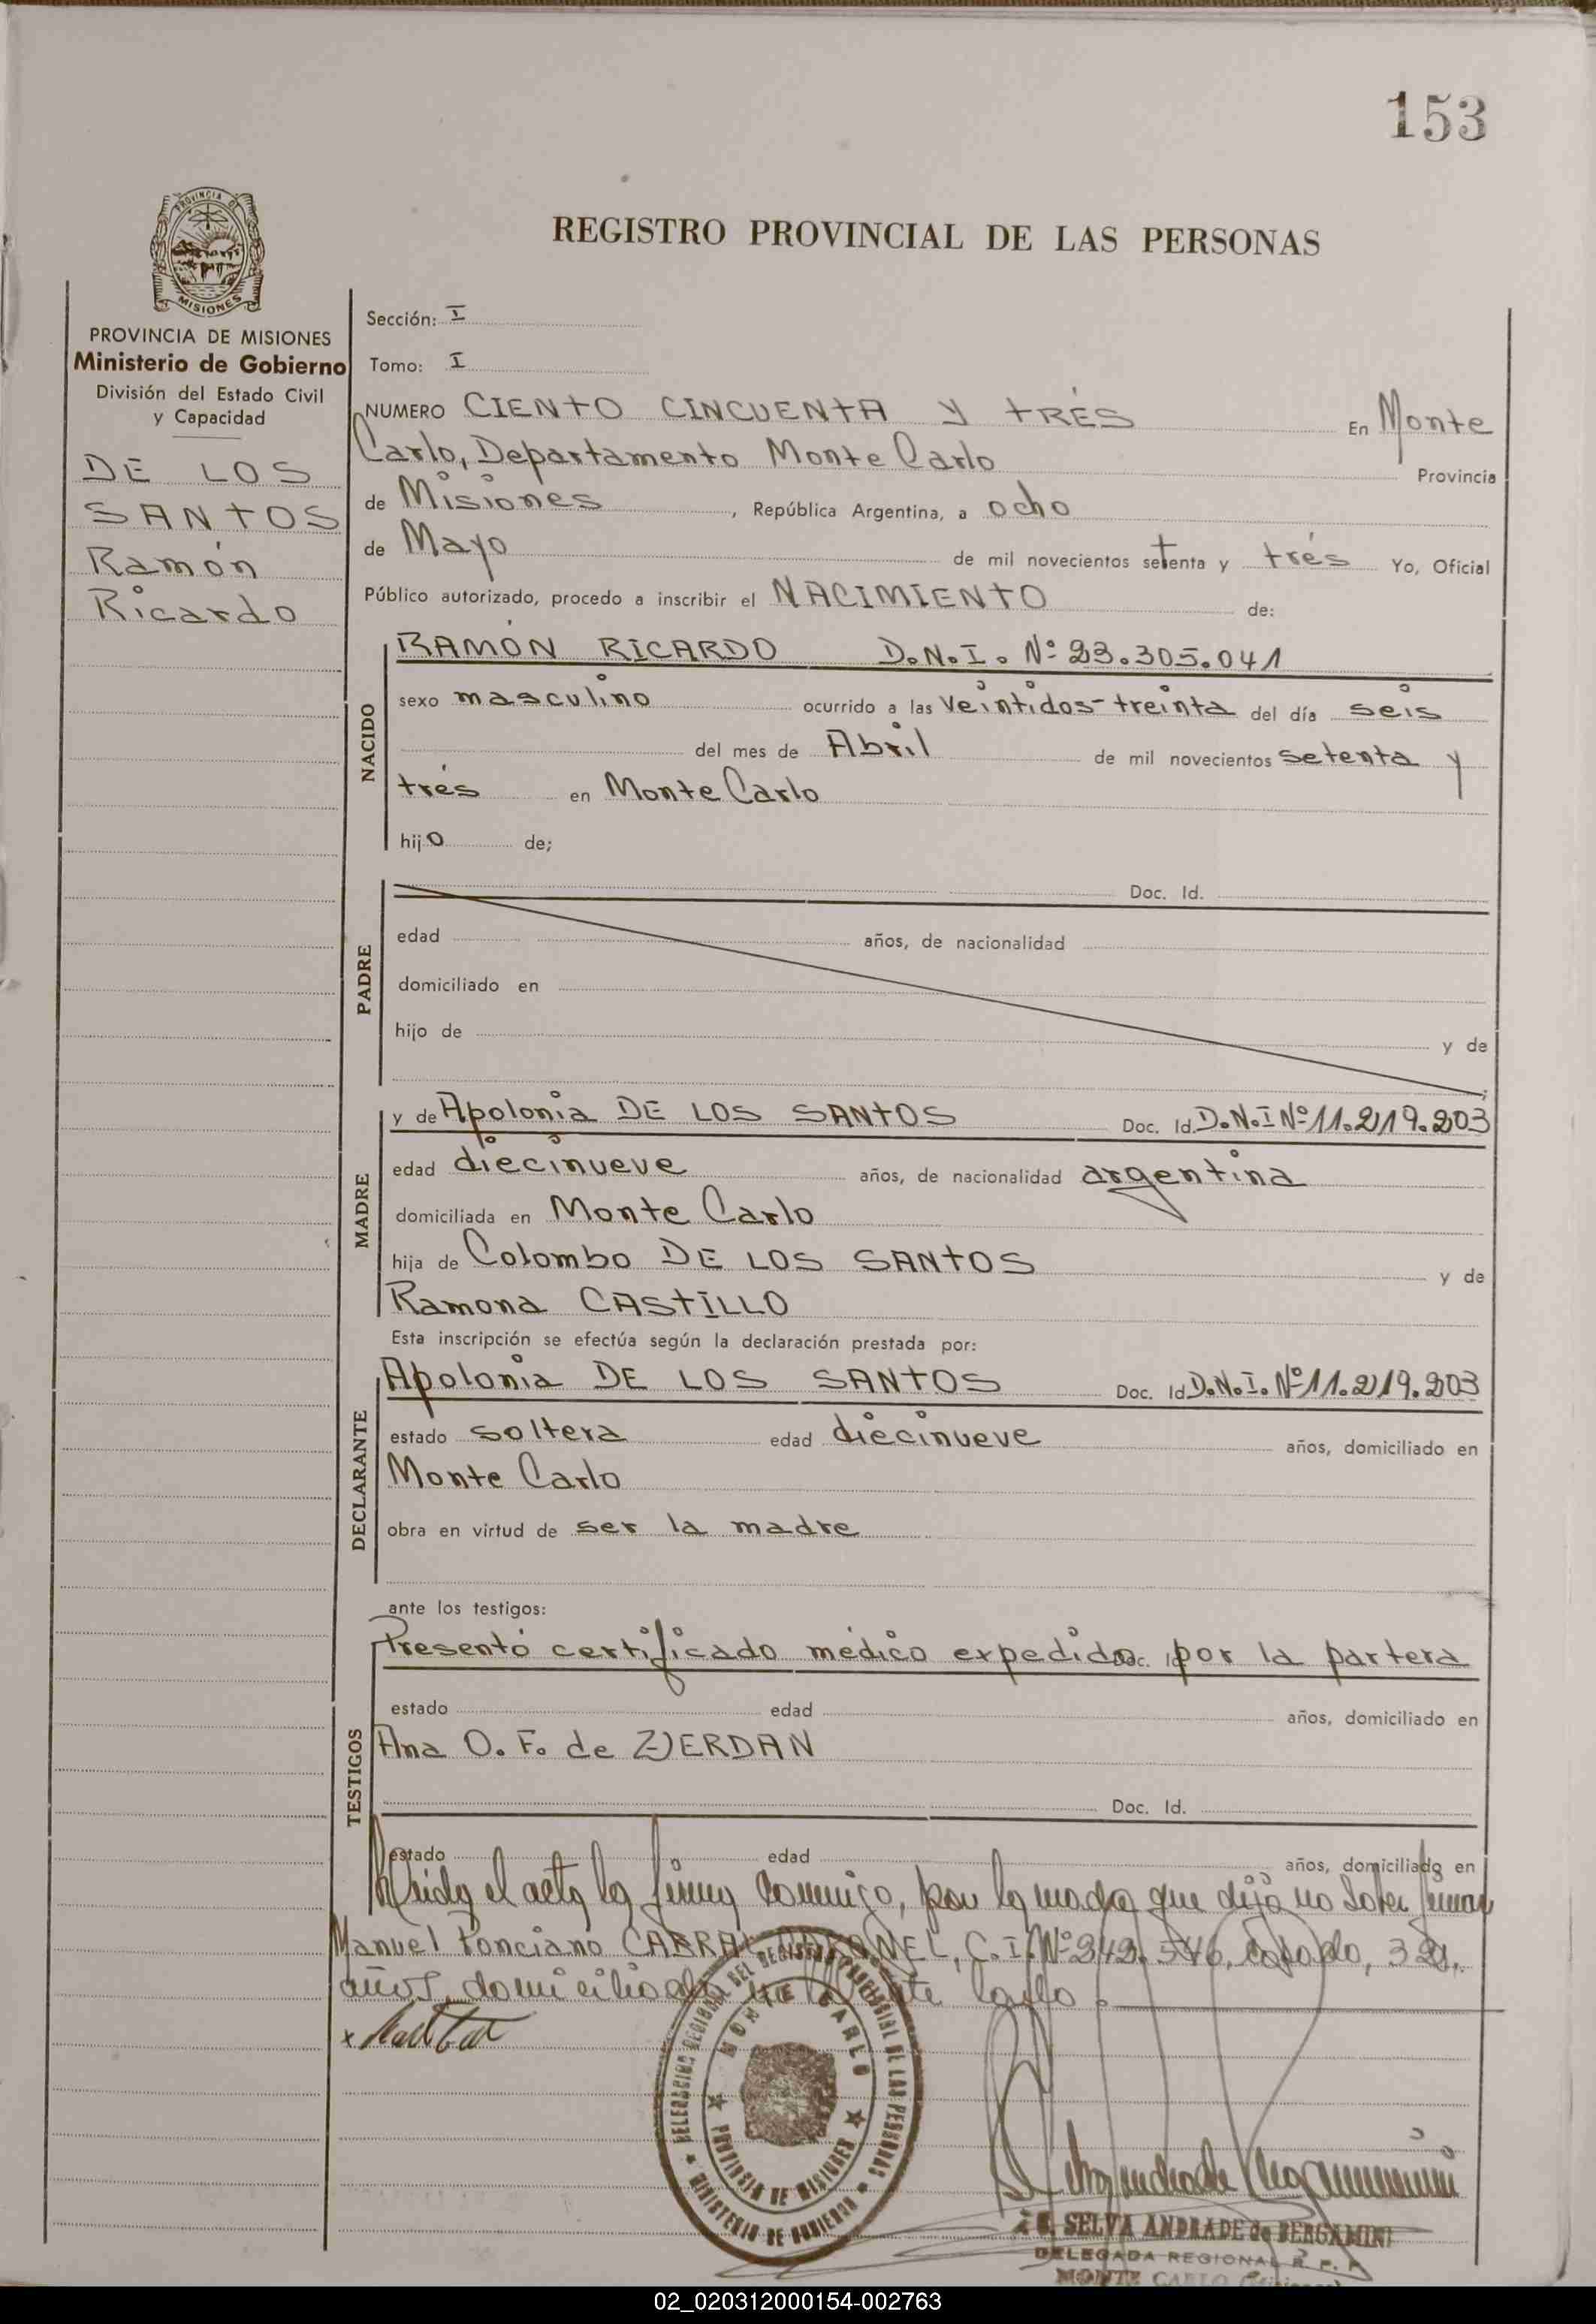 153
PROVINCIA DE
MISIONES
REGISTRO PROVINCIAL DE LAS PERSONAS
PROVINCIA DE MISIONES
Ministerio de Gobierno
División del Estado Civil
y Capacidad
DE LOS
SANTOS
Ramón
Ricardo
Sección: I
Tomo: I
NUMERO CIENTO CINCUENTA Y TRÉS En Monte
Carlo, Departamento Monte Carlo Provincia
de Misiones, República Argentina, a ocho
de Mayo de mil novecientos setenta y trés Yo, Oficial
Público autorizado, procedo a inscribir el NACIMIENTO de:
NACIDO
RAMÓN RICARDO D.N.I. Nº 23.305.041
sexo masculino ocurrido a las veintidos-treinta del día seis
del mes de Abril de mil novecientos setenta y
trés en Monte Carlo
hijo de;
PADRE
Doc. Id.
edad años, de nacionalidad
domiciliado en
hijo de y de
MADRE
y de Apolonia DE LOS SANTOS Doc. Id. D.N.I Nº 11.219.203
edad diecinueve años, de nacionalidad argentina
domiciliada en Monte Carlo
hija de Colombo DE LOS SANTOS y de
Ramona CASTILLO
Esta inscripción se efectúa según la declaración prestada por:
DECLARANTE
Apolonia DE LOS SANTOS Doc. Id D.N.I. Nº 11.219.203
estado soltera edad diecinueve años, domiciliado en
Monte Carlo
obra en virtud de ser la madre
ante los testigos:
TESTIGOS
Presentó certificado médico expedido Doc. Id por la partera
estado edad años, domiciliado en
Ana O. F. de ZERDAN
Doc. Id.
estado edad años, domiciliado en
Leida el acta la firma conmigo, por la madre que dijo no saber firmar
Manuel Ponciano CABRAL C.I. Nº 242.546, casado, 32
años, domiciliado en Monte Carlo.
DELEGACION REGIONAL DEL REGISTRO PROVINCIAL DE LAS PERSONAS
MONTE CARLO
PROVINCIA DE MISIONES
MINISTERIO DE GOBIERNO
SELVA ANDRADE de BERGAMINI
DELEGADA REGIONAL R. P. P.
MONTE CARLO (Misiones)
02_020312000154-002763